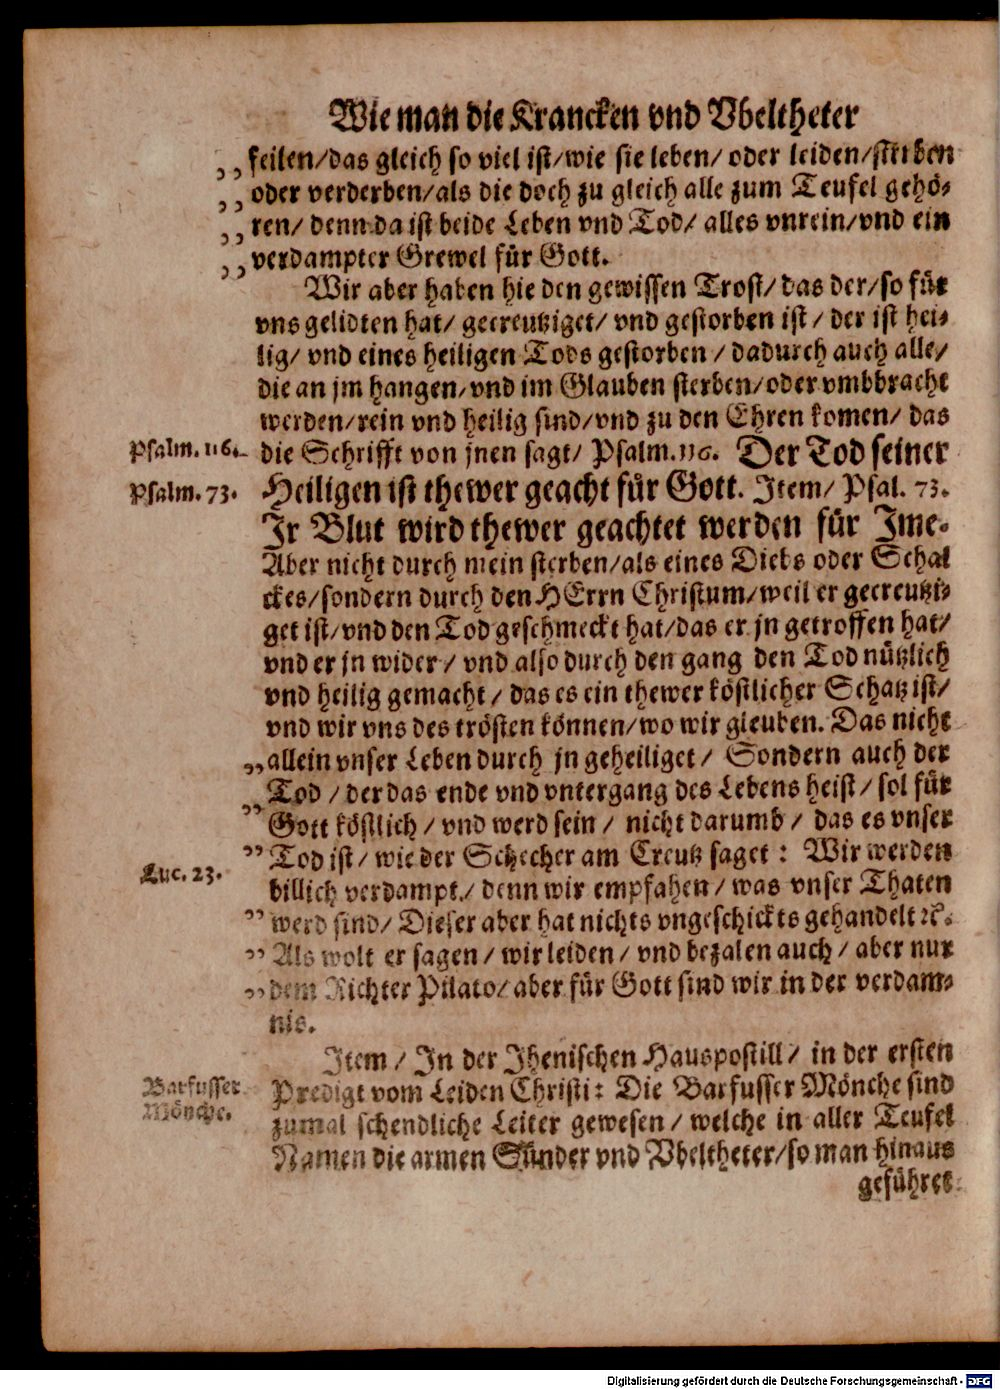 Wie man die Krancken vnd Vbeltheter
„ feilen/das gleich so viel ist/wie sie leben/ oder leiden/sterben
„ oder verderben/als die doch zu gleich alle zum Teufel gehö-
„ ren/ denn da ist beide Leben vnd Tod/ alles vnrein/vnd ein
„ verdampter Grewel für Gott.
Wir aber haben hie den gewissen Trost/das der/so für
vns gelidten hat/ gecreutziget/ vnd gestorben ist/ der ist hei-
lig/ vnd eines heiligen Tods gestorben/ dadurch auch alle/
die an jm hangen/vnd im Glauben sterben/oder vmbbracht
werden/rein vnd heilig sind/vnd zu den Ehren komen/ das
Psalm. 116. die Schrifft von jnen sagt/ Psalm. 116. Der Tod seiner
Psalm. 73. Heiligen ist thewer geacht für Gott. Item/ Psal. 73.
Ir Blut wird thewer geachtet werden für Ime.
Aber nicht durch mein sterben/als eines Diebs oder Schal
ckes/sondern durch den HErrn Christum/weil er gecreutzi-
get ist/vnd den Tod geschmeckt hat/das er jn getroffen hat/
vnd er jn wider/ vnd also durch den gang den Tod nützlich
vnd heilig gemacht/ das es ein thewer köstlicher Schatz ist/
vnd wir vns des trösten können/wo wir gleuben. Das nicht
„ allein vnser Leben durch jn geheiliget/ Sondern auch der
Tod/ der das ende vnd vntergang des Lebens heist/ sol für
„ Gott köstlich/ vnd werd sein/ nicht darumb/ das es vnser
„ Tod ist/ wie der Schecher am Creutz saget: Wir werden
Luc. 23. billich verdampt/ denn wir empfahen/ was vnser Thaten
„ werd sind/ Dieser aber hat nichts vngeschickts gehandelt ꝛc.
„ Als wolt er sagen/ wir leiden/ vnd bezalen auch/ aber nur
„ dem Richter Pilato/ aber für Gott sind wir in der verdam-
nis.
Item/ In der Jhenischen Hauspostill/ in der ersten
Barfusser Predigt vom Leiden Christi: Die Barfusser Mönche sind
Mönche. zumal schendliche Leiter gewesen/ welche in aller Teufel
Namen die armen Sünder vnd Vbeltheter/so man hinaus
geführet
Digitalisierung gefördert durch die Deutsche Forschungsgemeinschaft - DFG